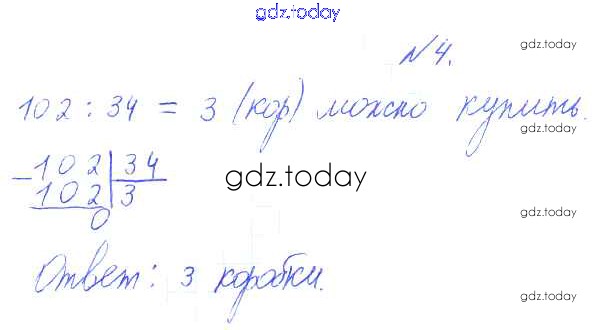 gdz.today
№4.
gdz.today
102 : 34 = 3 (кор) можно купить.
gdz.today
- 102 | 34
102 | 3
gdz.today
0
gdz.today
Ответ: 3 коробки.
gdz.today